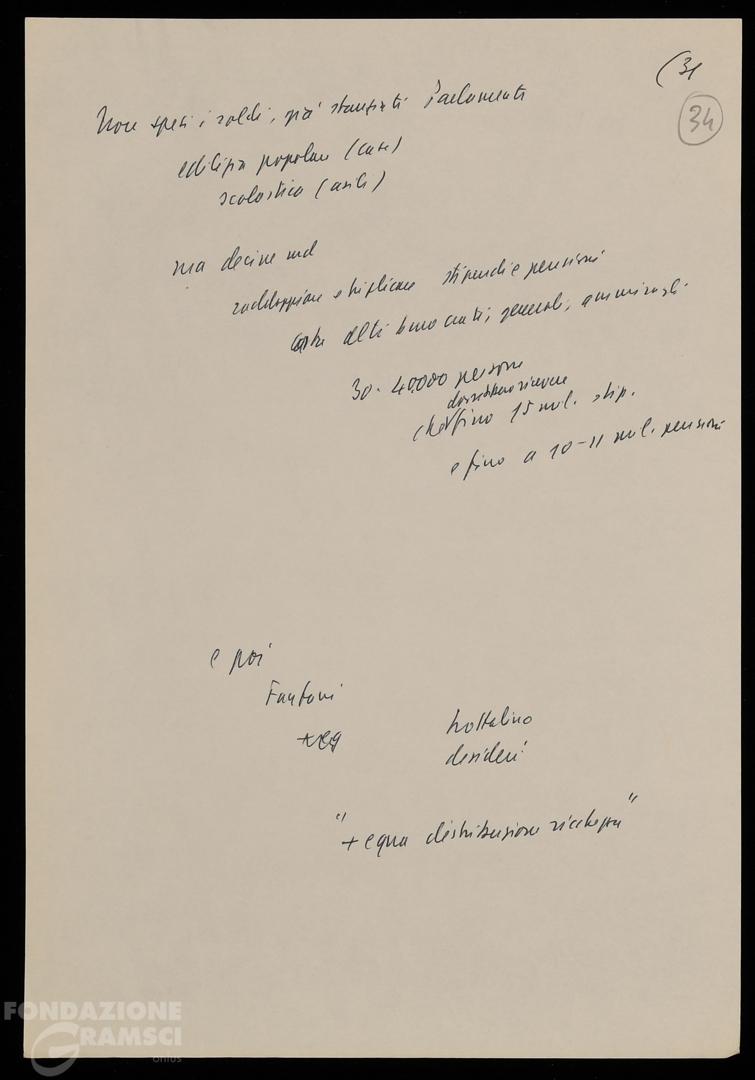 (31
34
Non spesi i soldi, già stanziati Parlamento
edilizia popolare (case)
scolastica (asili)
ma decine md
raddoppiare e triplicare stipendi e pensioni
alti burocrati, generali, ammiragli
30-40.000 persone
dovrebbero ricevere
fino 15 mil. stip.
e fino a 10-11 mil. pensioni
e poi
Fanfani
trottolino
desideri
"+ equa distribuzione ricchezza"
FONDAZIONE
GRAMSCI
onlus